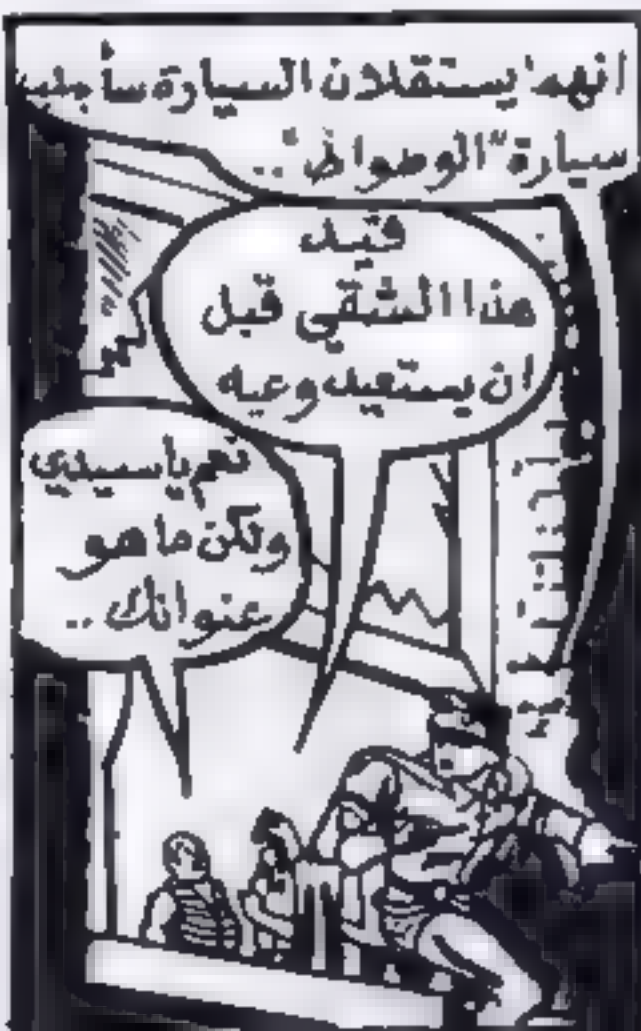 انهما يستقلان السيارة سأجلب
سيارة "الوطواط" ..
قيد
هذا الشقي قبل
ان يستعيد وعيه
نعم يا سيدي
ولكن ما هو
عنوانك ..